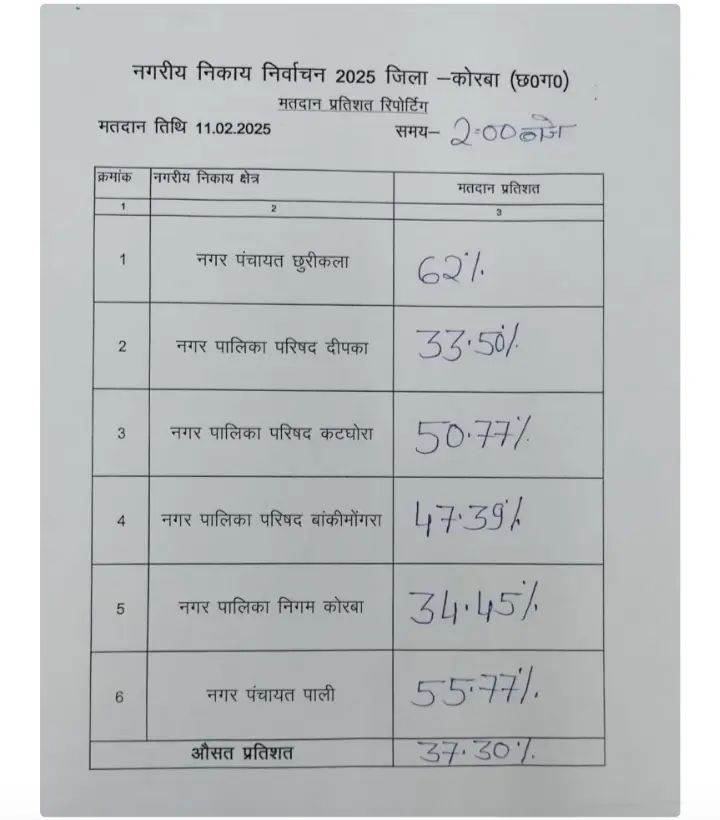 नगरीय निकाय निर्वाचन 2025 जिला –कोरबा (छ0ग0)
मतदान प्रतिशत रिपोर्टिंग
मतदान तिथि 11.02.2025 समय– 2:00 बजे
क्रमांक नगरीय निकाय क्षेत्र मतदान प्रतिशत
1 2 3
1 नगर पंचायत छुरीकला 62%
2 नगर पालिका परिषद दीपका 33.50%
3 नगर पालिका परिषद कटघोरा 50.77%
4 नगर पालिका परिषद बांकीमोंगरा 47.39%
5 नगर पालिका निगम कोरबा 34.45%
6 नगर पंचायत पाली 55.77%
औसत प्रतिशत 37.30%